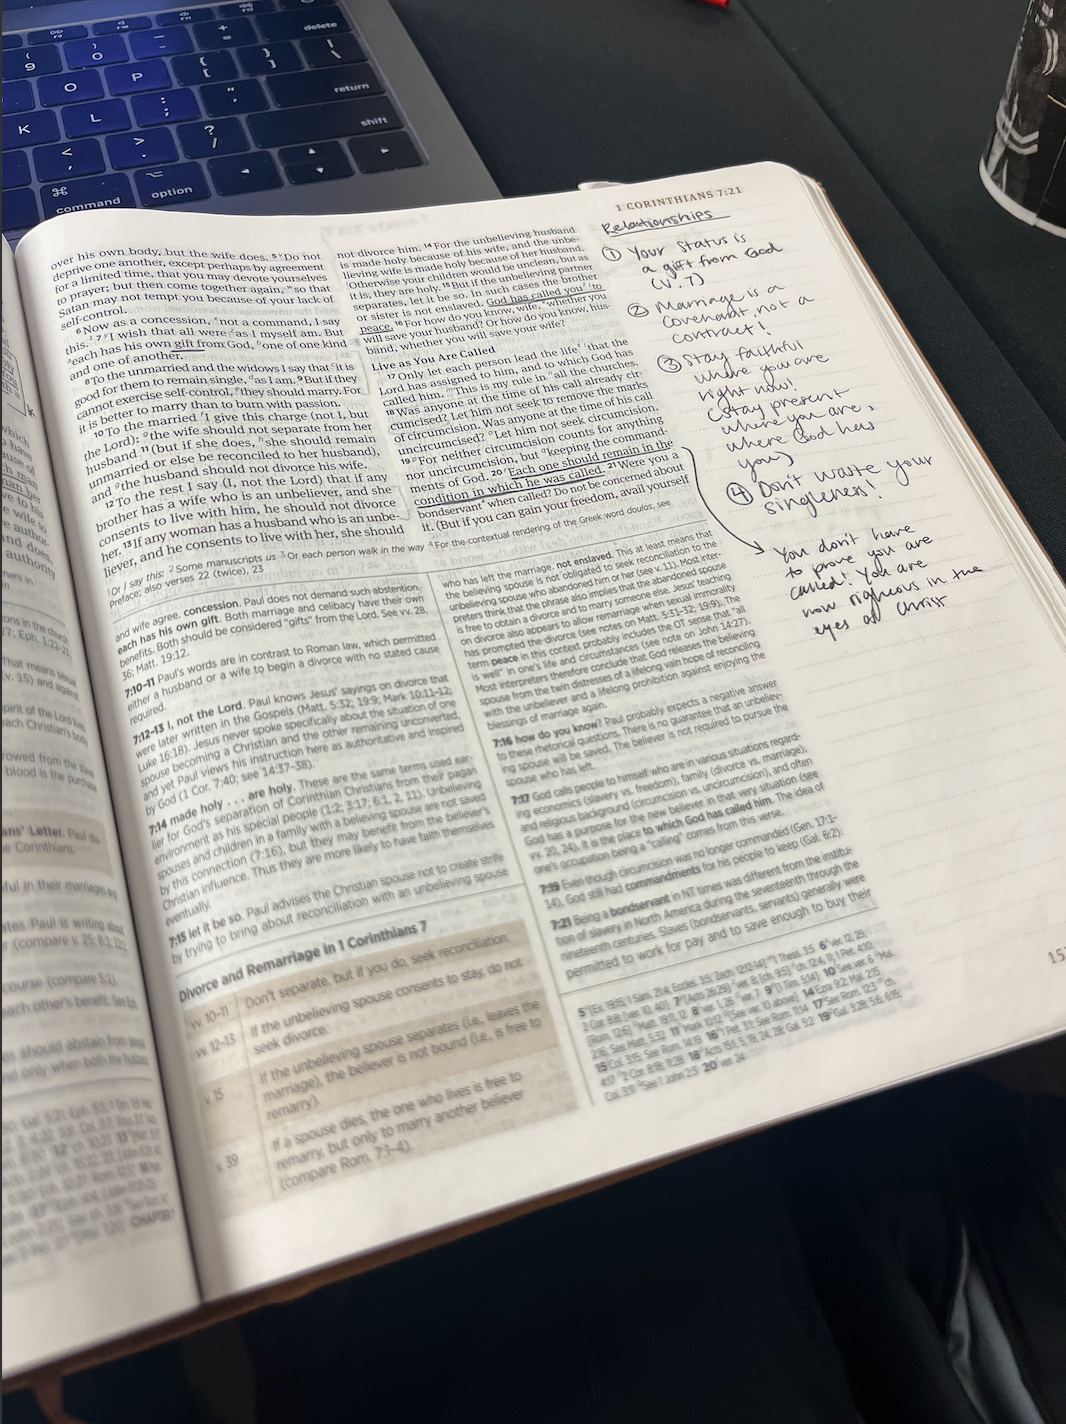 delete
return
shift
command
option
9
0
O
P
K
L
1 CORINTHIANS 7:21
over his own body, but the wife does. 5 Do not
deprive one another, except perhaps by agreement
for a limited time, that you may devote yourselves
to prayer; but then come together again, so that
Satan may not tempt you because of your lack of
self-control.
6 Now as a concession, not a command, I say
this. 7 I wish that all were as I myself am. But
each has his own gift from God, one of one kind
and one of another.
8 To the unmarried and the widows I say that it is
good for them to remain single, as I am. 9 But if they
cannot exercise self-control, they should marry. For
it is better to marry than to burn with passion.
10 To the married I give this charge (not I, but
the Lord): the wife should not separate from her
husband 11 (but if she does, she should remain
unmarried or else be reconciled to her husband),
and the husband should not divorce his wife.
12 To the rest I say (I, not the Lord) that if any
brother has a wife who is an unbeliever, and she
consents to live with him, he should not divorce
her. 13 If any woman has a husband who is an unbe-
liever, and he consents to live with her, she should
not divorce him. 14 For the unbelieving husband
is made holy because of his wife, and the unbe-
lieving wife is made holy because of her husband.
Otherwise your children would be unclean, but as
it is, they are holy. 15 But if the unbelieving partner
separates, let it be so. In such cases the brother
or sister is not enslaved. God has called you to
peace. 16 For how do you know, wife, whether you
will save your husband? Or how do you know, hus-
band, whether you will save your wife?
Live as You Are Called
17 Only let each person lead the life that the
Lord has assigned to him, and to which God has
called him. This is my rule in all the churches.
18 Was anyone at the time of his call already cir-
cumcised? Let him not seek to remove the marks
of circumcision. Was anyone at the time of his call
uncircumcised? Let him not seek circumcision.
19 For neither circumcision counts for anything
nor uncircumcision, but keeping the command-
ments of God. 20 Each one should remain in the
condition in which he was called. 21 Were you a
bondservant when called? Do not be concerned about
it. (But if you can gain your freedom, avail yourself
1 Or I say this: 2 Some manuscripts us 3 Or each person walk in the way 4 For the contextual rendering of the Greek word doulos, see
Preface; also verses 22 (twice), 23
and wife agree. concession. Paul does not demand such abstention.
each has his own gift. Both marriage and celibacy have their own
benefits. Both should be considered "gifts" from the Lord. See vv. 28,
36; Matt. 19:12.
7:10–11 Paul's words are in contrast to Roman law, which permitted
either a husband or a wife to begin a divorce with no stated cause
required.
7:12–13 I, not the Lord. Paul knows Jesus' sayings on divorce that
were later written in the Gospels (Matt. 5:32; 19:9; Mark 10:11–12;
Luke 16:18). Jesus never spoke specifically about the situation of one
spouse becoming a Christian and the other remaining unconverted,
and yet Paul views his instruction here as authoritative and inspired
by God (1 Cor. 7:40; see 14:37–38).
7:14 made holy . . . are holy. These are the same terms used ear-
lier for God's separation of Corinthian Christians from their pagan
environment as his special people (1:2; 3:17; 6:1, 2, 11). Unbelieving
spouses and children in a family with a believing spouse are not saved
by this connection (7:16), but they may benefit from the believer's
Christian influence. Thus they are more likely to have faith themselves
eventually.
7:15 let it be so. Paul advises the Christian spouse not to create strife
by trying to bring about reconciliation with an unbelieving spouse
who has left the marriage. not enslaved. This at least means that
the believing spouse is not obligated to seek reconciliation to the
unbelieving spouse who abandoned him or her (see v. 11). Most inter-
preters think that the phrase also implies that the abandoned spouse
is free to obtain a divorce and to marry someone else. Jesus' teaching
on divorce also appears to allow remarriage when sexual immorality
has prompted the divorce (see notes on Matt. 5:31–32; 19:9). The
term peace in this context probably includes the OT sense that "all
is well" in one's life and circumstances (see note on John 14:27).
Most interpreters therefore conclude that God releases the believing
spouse from the twin distresses of a lifelong vain hope of reconciling
with the unbeliever and a lifelong prohibition against enjoying the
blessings of marriage again.
7:16 how do you know? Paul probably expects a negative answer
to these rhetorical questions. There is no guarantee that an unbeliev-
ing spouse will be saved. The believer is not required to pursue the
spouse who has left.
7:17 God calls people to himself who are in various situations regard-
ing economics (slavery vs. freedom), family (divorce vs. marriage),
and religious background (circumcision vs. uncircumcision), and often
God has a purpose for the new believer in that very situation (see
vv. 20, 24). It is the place to which God has called him. The idea of
one's occupation being a "calling" comes from this verse.
7:19 Even though circumcision was no longer commanded (Gen. 17:1–
14), God still had commandments for his people to keep (Gal. 6:2).
7:21 Being a bondservant in NT times was different from the institu-
tion of slavery in North America during the seventeenth through the
nineteenth centuries. Slaves (bondservants, servants) generally were
permitted to work for pay and to save enough to buy their
Divorce and Remarriage in 1 Corinthians 7
vv. 10–11 Don't separate, but if you do, seek reconciliation.
vv. 12–13 If the unbelieving spouse consents to stay, do not
seek divorce.
v. 15 If the unbelieving spouse separates (i.e., leaves the
marriage), the believer is not bound (i.e., is free to
remarry).
v. 39 If a spouse dies, the one who lives is free to
remarry, but only to marry another believer
(compare Rom. 7:1–4).
Relationships
① Your status is
a gift from God
(v. 7)
② Marriage is a
covenant, not a
contract!
③ Stay faithful
where you are
right now!
(stay present
where you are,
where God has
you)
④ Don't waste your
singleness!
You don't have
to prove you are
called! You are
now righteous in the
eyes of Christ